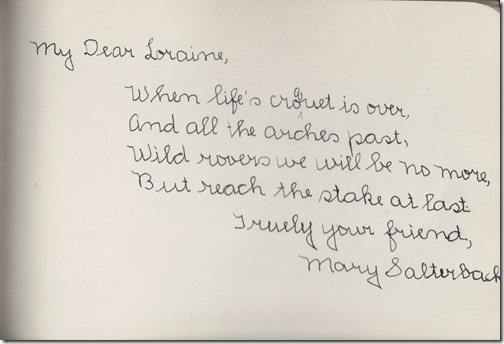 My Dear Loraine,
When life's croquet is over,
And all the arches past,
Wild rovers we will be no more,
But reach the stake at last.
Truely your friend,
Mary Salterbach